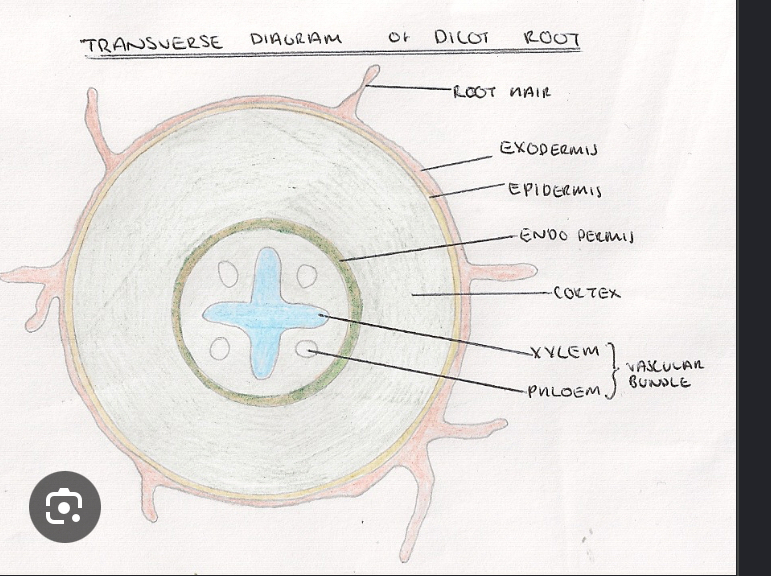 TRANSVERSE DIAGRAM OF DICOT ROOT
ROOT HAIR
EXODERMIS
EPIDERMIS
ENDO PERMIS
CORTEX
XYLEM
PHLOEM
VASCULAR
BUNDLE